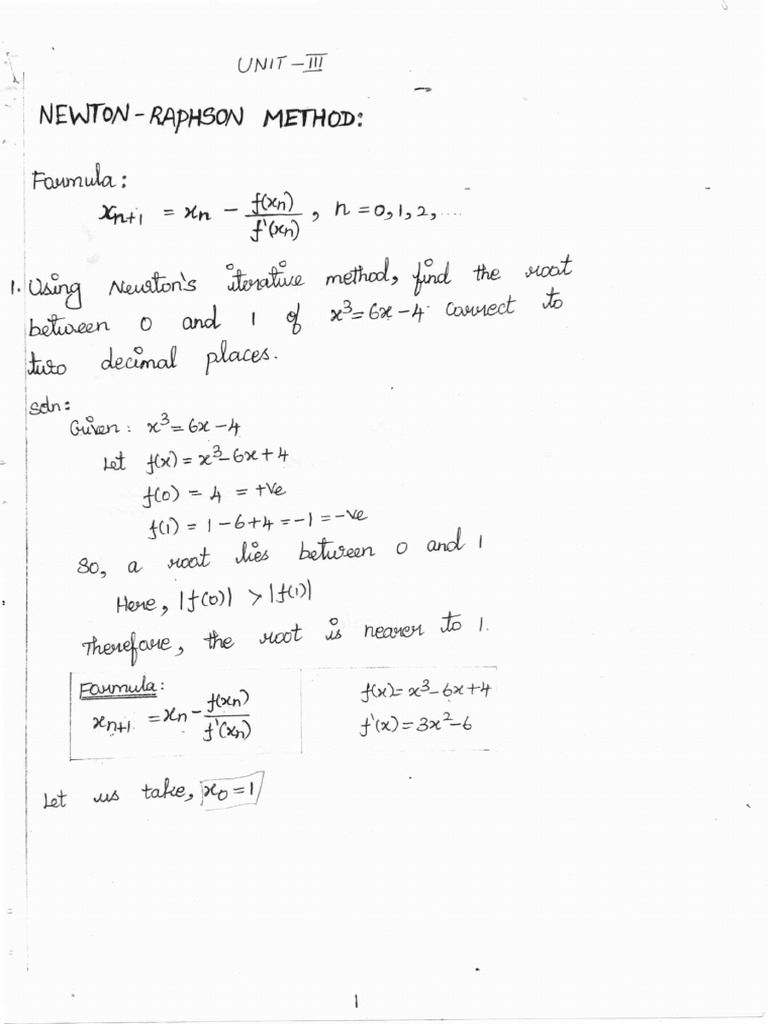 UNIT-III
NEWTON-RAPHSON METHOD:
Formula:
xₙ₊₁ = xₙ - f(xₙ)/f'(xₙ), n=0,1,2,....
1. Using Newton's iterative method, find the root
between 0 and 1 of x³=6x-4 correct to
two decimal places.
Soln:
Given: x³=6x-4
Let f(x)=x³-6x+4
f(0) = 4 = +ve
f(1) = 1-6+4=-1=-ve
So, a root lies between 0 and 1
Here, |f(0)| > |f(1)|
Therefore, the root is nearer to 1.
Formula:
xₙ₊₁ = xₙ - f(xₙ)/f'(xₙ)
f(x)=x³-6x+4
f'(x)=3x²-6
Let us take, x₀=1
1